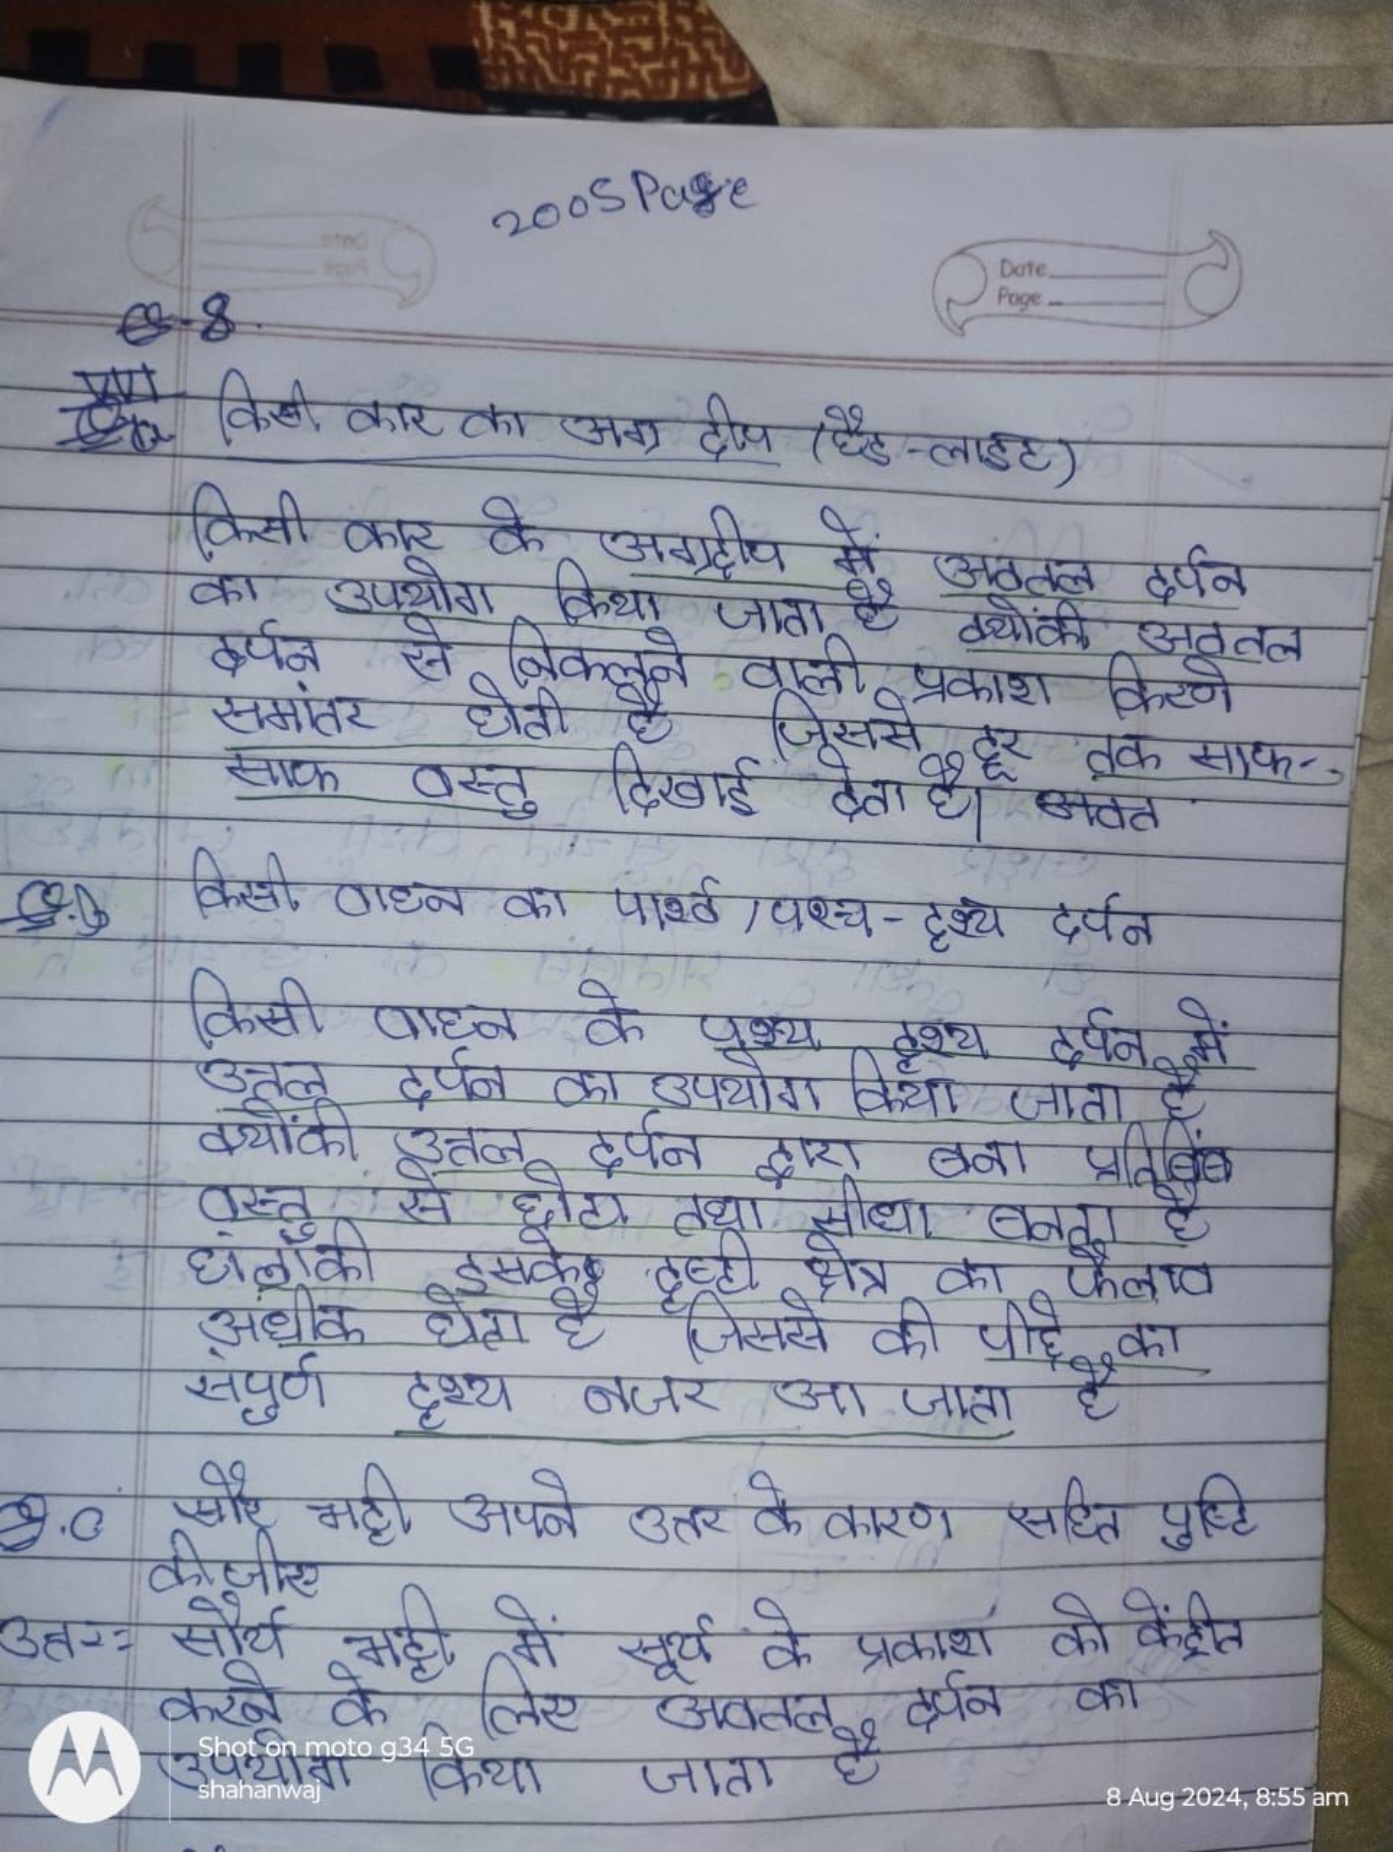 200SPage
Date
Page
Q-8
किसी कार का अग्र दीप (हैड-लाइट)
किसी कार के अग्रद्दीप में अवतल दर्पन
का उपयोग किया जाता है क्योंकी अवतल
दर्पन से निकलने वाली प्रकाश किरणे
समांतर होती है जिससे दूर तक साफ-
साफ वस्तु दिखाई देता है। अवत
किसी वाहन का पार्श्व / पश्च-दृश्य दर्पन
किसी वाहन के पृश्य दृश्य दर्पन में
उत्तल दर्पन का उपयोग किया जाता है
क्योंकी उत्तल दर्पन द्वारा बना प्रतिबिंब
वस्तु से छोटा तथा सीधा बनता है
हालाकी इसके दृष्टी क्षेत्र का फैलाव
अधीक होता है जिससे की पीछे का
संपुर्ण दृश्य नजर आ जाता है
Q.C सौर भट्टी अपने उत्तर के कारण सहित पुष्टि
कीजीए
उत्तर:- सौर्य भट्टी में सूर्य के प्रकाश को केंद्रीत
करने के लिए अवतल दर्पन का
उपयोग किया जाता है
Shot on moto g34 5G
shahanwaj
8 Aug 2024, 8:55 am